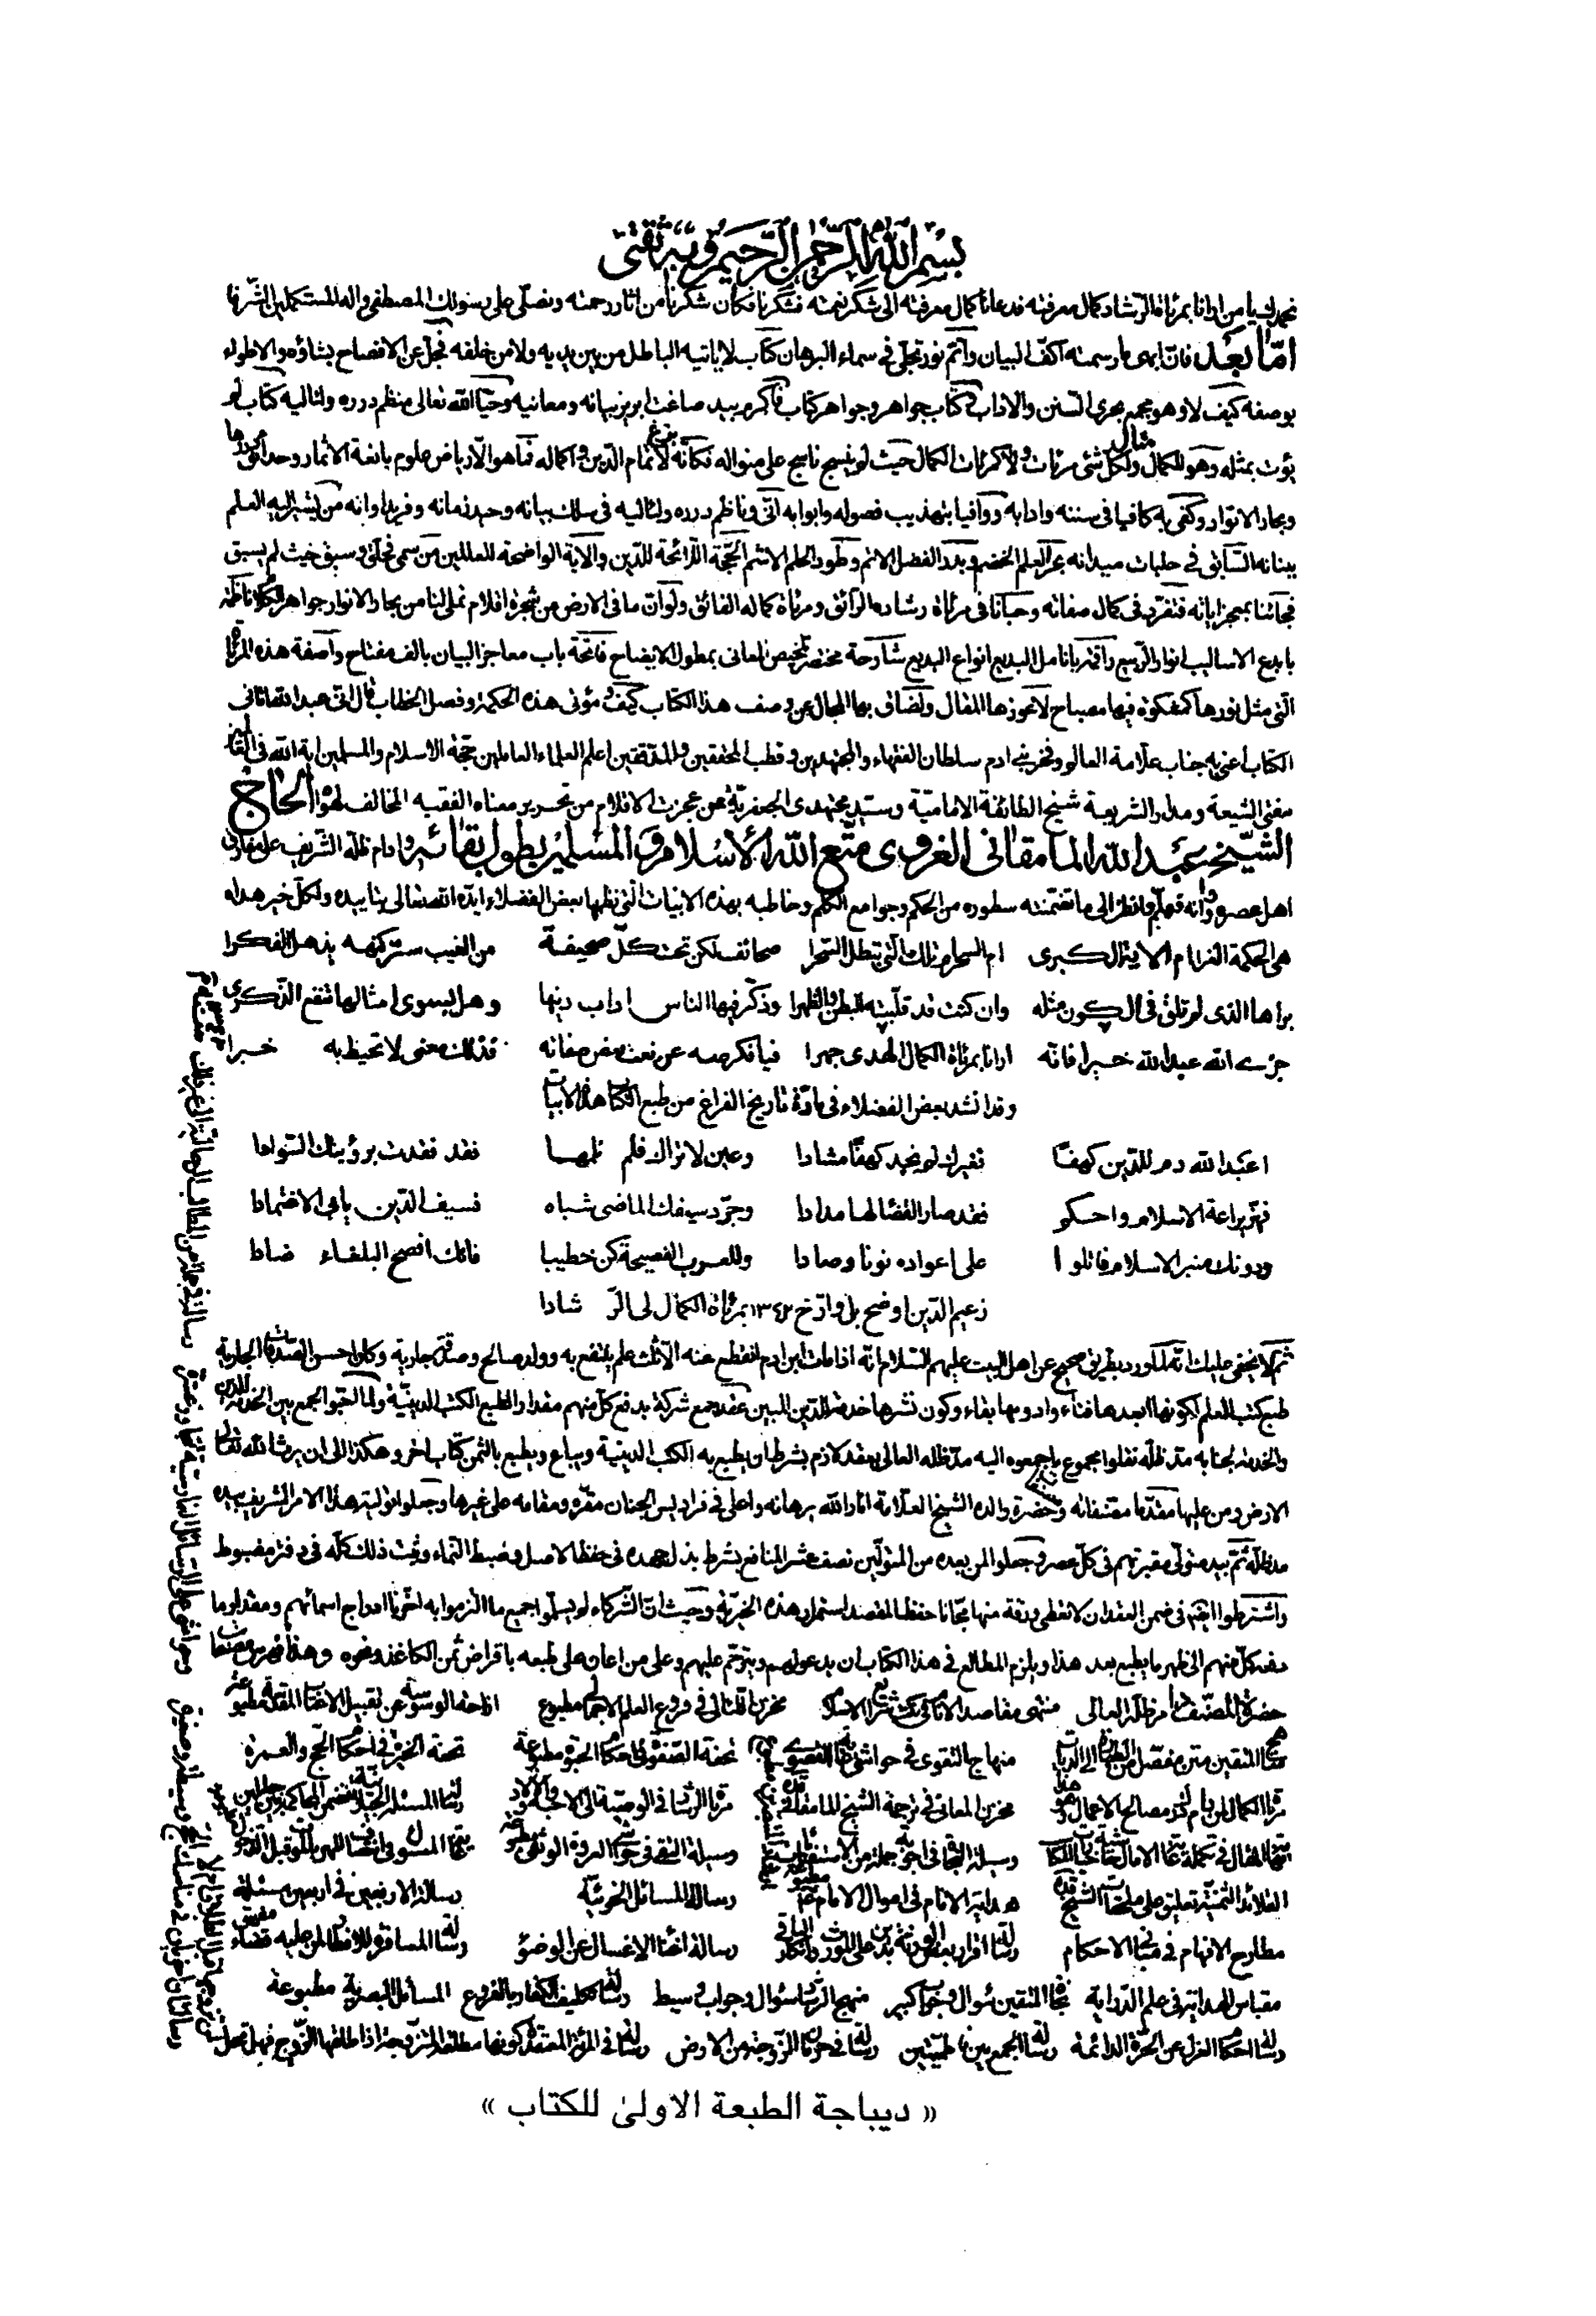 بسم الله الرحمن الرحيم وبه ثقتى
نحمدك يا من ارانا بمرئاة الرشاد كمال معرفته فدعانا كمال معرفته الى شكر نعمته فشكرنا فكان شكرنا من اثار رحمته ونصلى على رسولك المصطفى واله المستكملين الشرفا
امّا بعد فان ابهى ما رسمته اكفّ البيان واتم نور تجلّى فى سماء البرهان كتاب لا ياتيه الباطل من بين يديه ولا من خلفه فجلّ عن الافصاح بثناؤه والاطراء
بوصفه كيف لا وهو مجمع بحرى السنن والاداب كتاب جواهر وجواهر كتاب فاكرم بيد صاغت ابريز بيانه ومعانيه وحيّا الله تعالى منظم درره ولئاليه كتاب لم
يؤت بمثله وهو للكمال ولكل شئ مرئات ولا كمرئات الكمال حيث لم ينسج ناسج على منواله فكانه لاتمام الدين واكماله فما هو الّا رياض علوم يانعة الاثمار وحدائق
وبحار الانوار وكفى به كافيا فى سننه وادابه ووافيا بتهذيب فصوله وابوابه انّى وناظم درره ولئاليه فى سلك بيانه وحيد زمانه وفريد اوانه من يشير اليه العلم
ببنانه السابق فى حلبات ميدانه بحر العلم الخضم وبدر الفضل الاتم وطود الحلم الاشم الحجّة اللائحة للدّين والاية الواضحة للعالمين من سمى فجلّى وسبق حيث لم يسبق
فجائنا بمعجز اياته فتفرّد فى كمال صفاته وحبانا فى مرئاة رشاده الرائق ومرئاة كماله الفائق ولو ان ما فى الارض من شجرة اقلام تملى لنا من بحار الانوار جواهر الكلام
بابدع الاساليب انوار الربيع راقمة بانامل البديع انواع البديع شارحة مختصر تلخيص المعانى بمطول الايضاح فاتحة باب معاجز البيان بالف مفتاح واصفة هذه المرئاة
التى مثل نورها كمشكوة فيها مصباح لاعوزها المقال ولضاق بها المجال عن وصف هذا الكتاب كيف ومؤتى هذه الحكمة وفصل الخطاب قال انى عبد الله اتانى
الكتاب اعنى به جناب علّامة العالم وفخر بنى ادم سلطان الفقهاء والمجتهدين وقطب المحققين والمدققين اعلم العلماء العاملين حجّة الاسلام والمسلمين اية الله فى العالمين
مفتى الشيعة ومدار الشريعة شيخ الطائفة الاماميّة وسيّد مجتهدى الجعفريّة من عجزت الاقلام من تحرير معناه الفقيه المخالف لهواه الحاج
الشّيخ عبد الله المامقانى الغروى متّع الله الاسلام والمسلمين بطول بقائه وادام ظله الشريف على مفارق
اهل عصره واوانه فهلمّ وانظر الى ما تضمنته سطوره من الحكم وجوامع الكلم وخاطبه بهذه الابيات التى نظمها بعض الفضلاء ايّده الله تعالى بتاييده ولكل خير هداه
هى الحكمة الغراء ام الاية الكبرى ام السحر ام تلك التى تبطل السحرا صحائف لكن تحت كلّ صحيفة من الغيب ستر كنهه يذهل الفكرا
براها الذى لم تلق فى الكون مثله وان كنت قد قلّبته البطن والظهرا وذكّر فيها الناس اداب دينها وهل بسوى امثالها تنفع الذكرى
جزى الله عبد الله خيرا فانّه ارانا بمرئاة الكمال الهدى جهرا فيا فكر مه عن نعت بعض صفاته فذلك معنى لا تحيط به خبرا
وقد انشد بعض الفضلاء فى مادّة تاريخ الفراغ من طبع الكتاب هذه الابيات
اعبد الله دم للدّين كهفًا فغيرك لم نجد كهفًا مشادا وعين لا تراك فلم نلمها فقد فقدت برؤيتك السّوادا
فهزّ يراعة الاسلام واحكم فقد صار القضا لها مدادا وجرّد سيفك الماضى شباه فسيف الدّين يابى الاغتمادا
ودونك منبر الاسلام فاتلوا على اعواده نونا وصادا وللعرب الفصيحة كن خطيبا فانك افصح البلغاء ضادا
زعيم الدّين اوضح بل وارّخ ١٣٤٢ بمرئاة الكمال لى الرّشادا
ثم لا يخفى عليك انّه لما ورد بطريق صحيح عن اهل البيت عليهم السّلام انّه اذا مات ابن ادم انقطع عنه الّا ثلث علم ينتفع به وولد صالح وصدقة جارية وكان احسن الصّدقات الجارية
طبع كتب العلم لكونها ابعدها فناء وادومها بقاء وكون نشرها خدمة للدّين المبين عقد جمع شركة بدفع كلّ منهم مقدارا لطبع الكتب الدينيّة ولما احبّوا الجمع بين الخدمة للدين
والخدمة لجنابه مدّ ظلّه نقلوا مجموع ما جمعوه اليه مدّ ظله العالى بعقد لازم بشرط ان يطبع به الكتب الدينية ويباع ويطبع بالثمن كتاب اخر وهكذا الى ان يرث الله تعالى
الارض ومن عليها مقدّما مصنفاته وحضرة والده الشيخ العلّامة انار الله برهانه واعلى فى فراديس الجنان مقرّه ومقامه على غيرها وجعلوا تولية هذا الامر الشريف بيده
مد ظلّه ثم بيد متولى مقبرتهم فى كلّ عصر وجعلوا لمن بعده من المتولّين نصف عشر المنافع بشرط بذل جهده فى حفظ الاصل وضبط النماء وثبت ذلك كلّه فى دفتر مضبوط
واشترطوا ايضا فى ضمن العقد ان لا تعطى ورقة منها مجّانا حفظا لمقصد استمرار هذه الخيريّة وحيث انّ الشركاء لم يسلّموا جميع ما التزموا به اخّرنا ادراج اسمائهم ومقدار ما
دفعه كلّ منهم الى ظهر ما يطبع بعد هذا ويلزم المطالع فى هذا الكتاب ان يدعو لهم ويترحّم عليهم وعلى من اعان على طبعه باقراض ثمن الكاغذ ونحوه وهذا فهرس مصنفات
حضرة المصنّف دام ظله العالى منتهى مقاصد الانام فى نكت شرائع الاسلام مخزن اللئالى فى فروع العلم الاجمالى مطبوع ازاحة الوسوسة عن تقبيل الاعتاب المقدسة مطبوع
مناهج المتقين متن مفصّل من الطهارة الى الديات منهاج التقوى فى حواشى العروة الوثقى تحفة الصّفوة فى احكام الحبوة مطبوعة تحفة الخيرة فى احكام الحجّ والعمرة
مرئاة الكمال لمن رام درك مصالح الاعمال وهو هذا مخزن المعانى فى ترجمة الشيخ المامقانى قده مرئاة الرشاد فى الوصيّة الى الاحبة والاولاد
وسيلة النجاة فى اجوبة جملة من الاستفتائات وسيلة التقى فى حواشى العروة الوثقى مطبوعة
القلائد الثمينة تعليق على ملحقات الشيخ قده هداية الانام فى اموال الامام مطبوع رسالة المسائل الخوئيّة رسالة الاربعين فى اربعين مسئلة
مطارح الافهام فى مبانى الاحكام رسالة اقرار بعض الورثة بدين على المورث وانكار الباقى رسالة اغناء الاغسال عن الوضوء رسالة المسافرة للافطار لمن عليه قضاء
مقباس الهداية فى علم الدراية تحفة المتقين سؤال وجواب كبير منهج الرشاد سؤال وجواب وسيط رسالة تكليف الكفار بالفروع المسائل البصرية مطبوعة
رسالة احكام العزل عن الحرّة الدائمة رسالة الجمع بين فاطميّتين رسالة فى حرمان الزوجة من الارض
« ديباجة الطبعة الاولىٰ للكتاب »